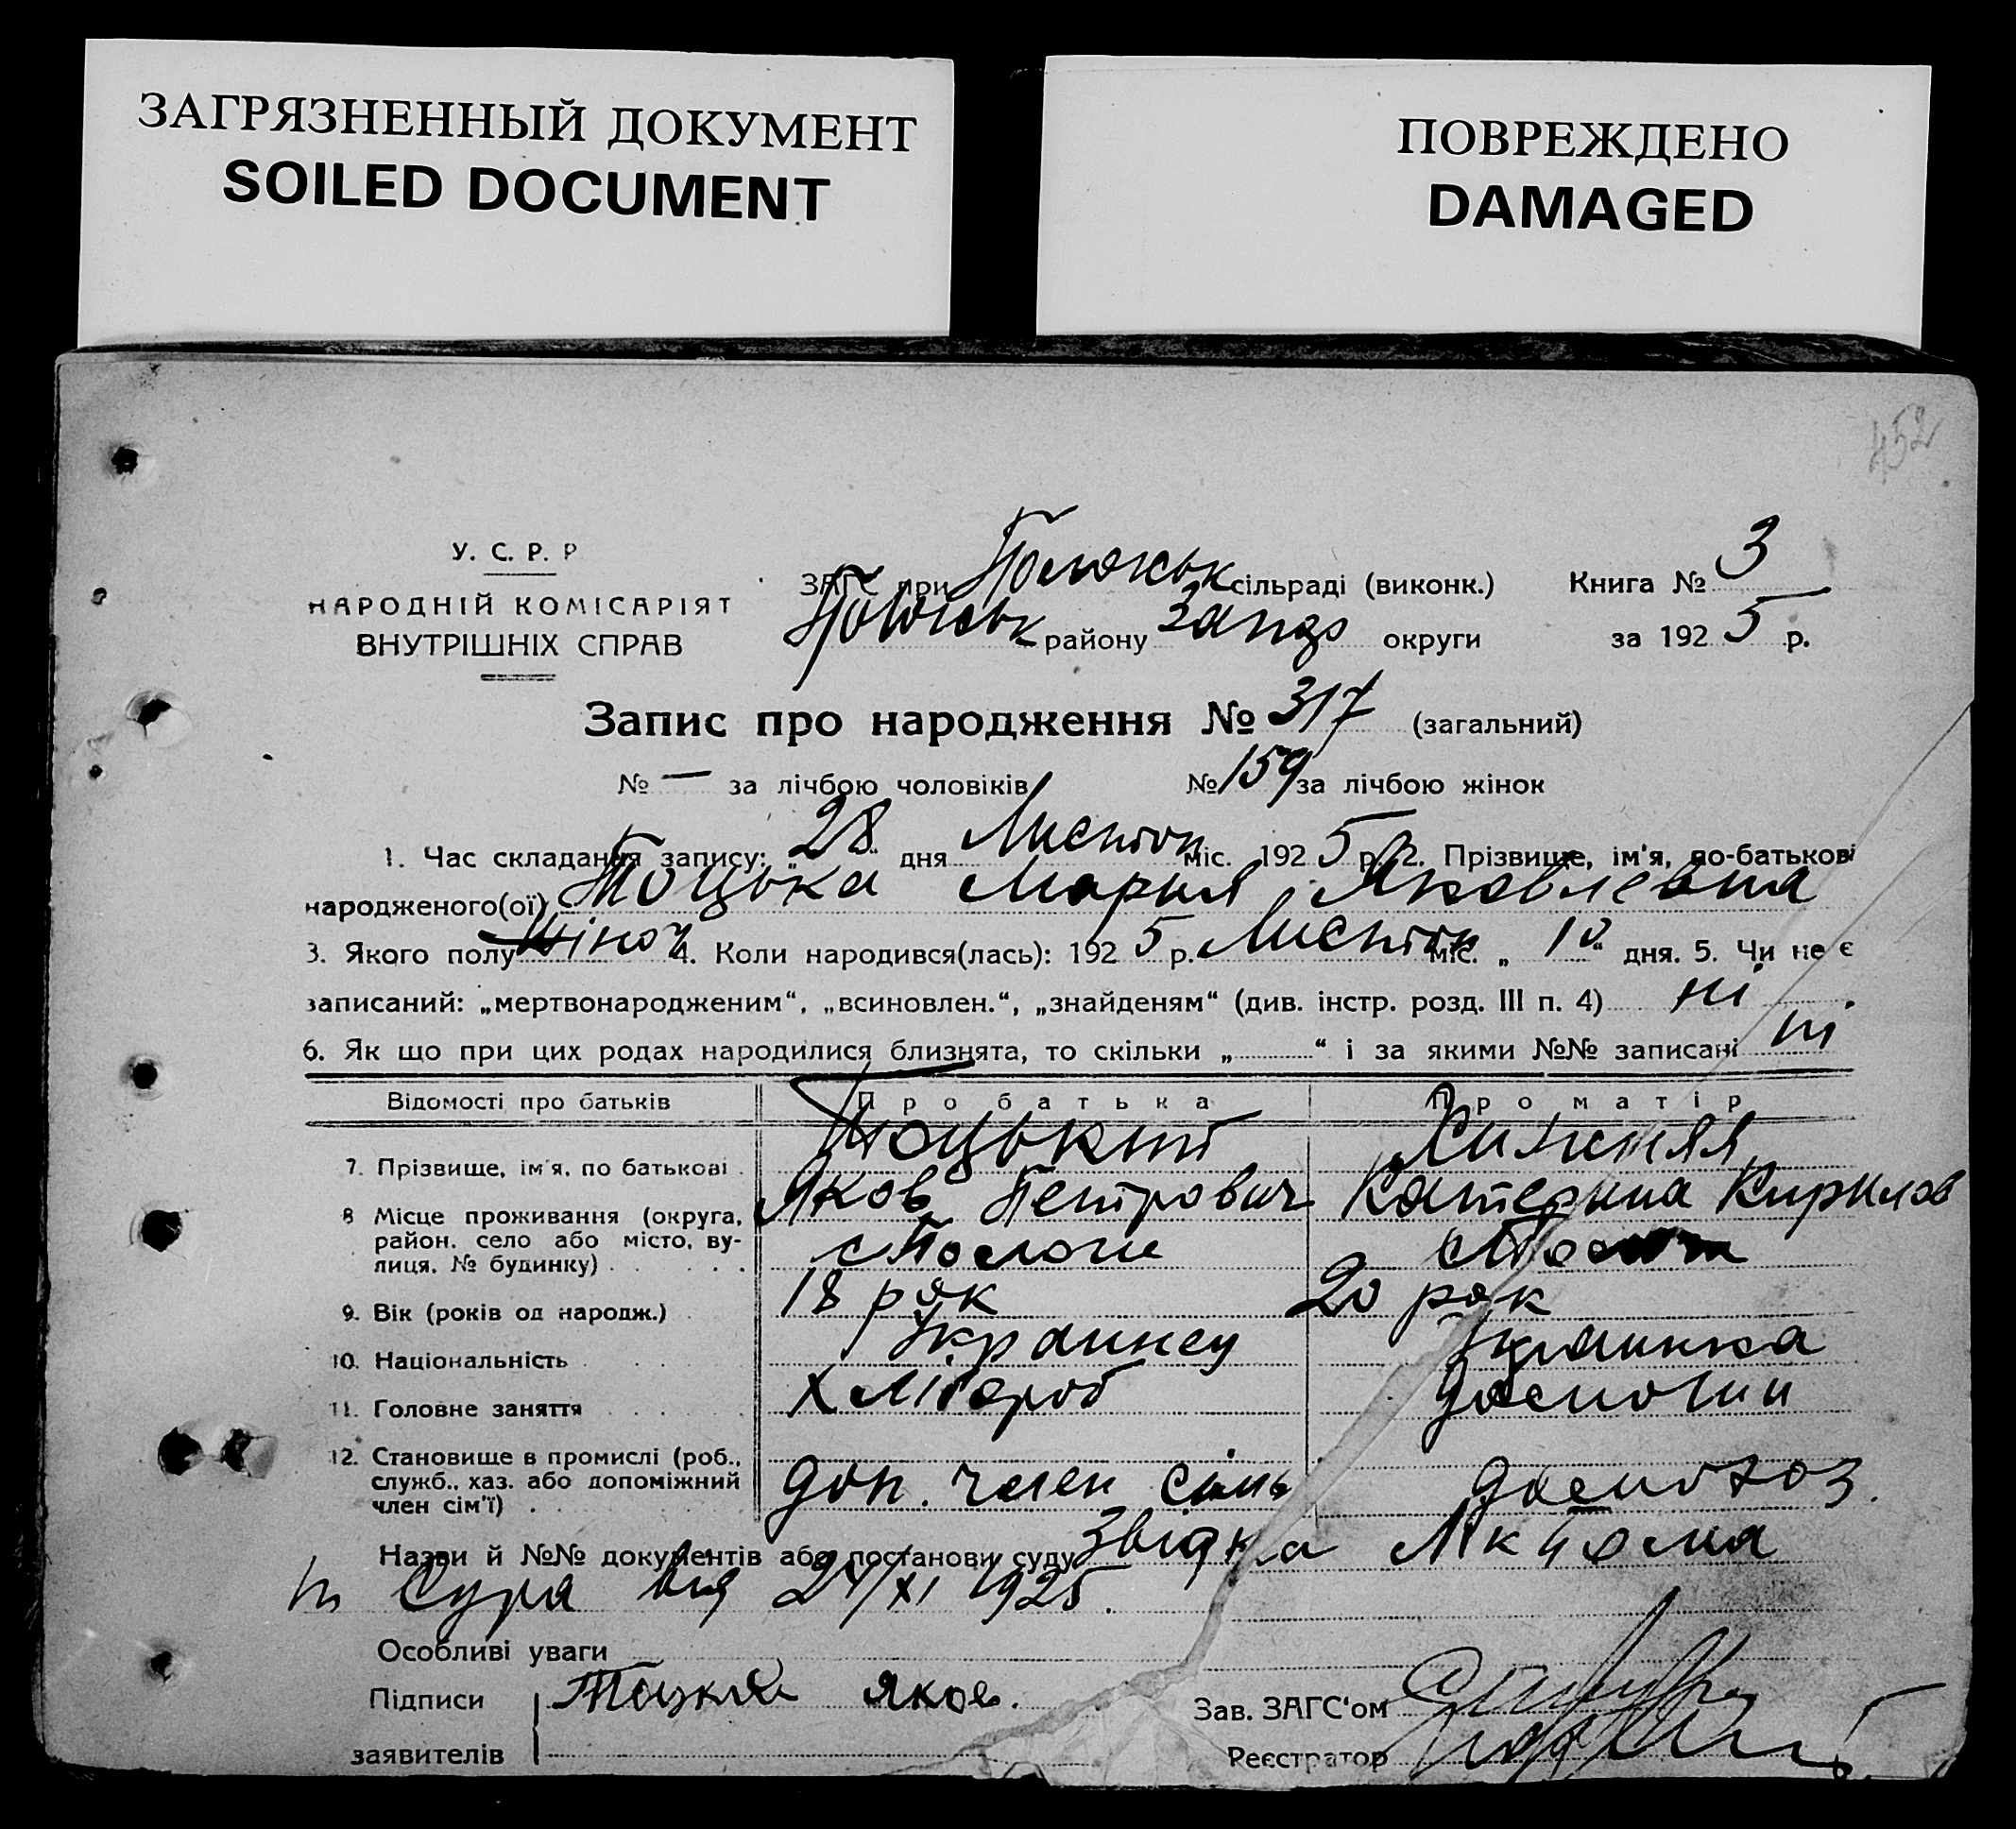 ЗАГРЯЗНЕННЫЙ ДОКУМЕНТ
SOILED DOCUMENT
ПОВРЕЖДЕНО
DAMAGED
452
У. С. Р. Р
НАРОДНІЙ КОМІСАРІЯТ
ВНУТРІШНІХ СПРАВ
ЗАГС при Пологськ сільраді (виконк.) Книга № 3
Пологськ району Запоз округи за 1925 р.
Запис про народження № 317 (загальний)
№ — за лічбою чоловіків № 159 за лічбою жінок
1. Час складання запису: „28“ дня Листоп міс. 1925 р. 2. Прізвище, ім'я, по-батькові
народженого(ої) Тоцька Мария Яковлевна
3. Якого полу жіноч 4. Коли народився(лась): 1925 р. Листоп міс. „10“ дня. 5. Чи не є
записаний: „мертвонародженим“, „всиновлен.“, „знайденям“ (див. інстр. розд. III п. 4) ні.
6. Як що при цих родах народилися близнята, то скільки „ “ і за якими №№ записані ні
Відомості про батьків Про батька Про матір
7. Прізвище, ім'я, по батькові Тоцький
Яков Петрович Катерина Кирилов
8 Місце проживання (округа, район, село або місто, вулиця, № будинку) с Пологи
9. Вік (років од народж.) 18 рок 20 рок
10. Національність Украинец Украинка
11. Головне заняття Хлібороб
12. Становище в промислі (роб., служб., хаз. або допоміжний член сім'ї) доп. член сімь
Назви й №№ документів або постанови суду Звідка
від 24/XI 1925.
Особливі уваги
Підписи Тоцкий Яков.
заявителів
Зав. ЗАГС'ом
Реєстратор